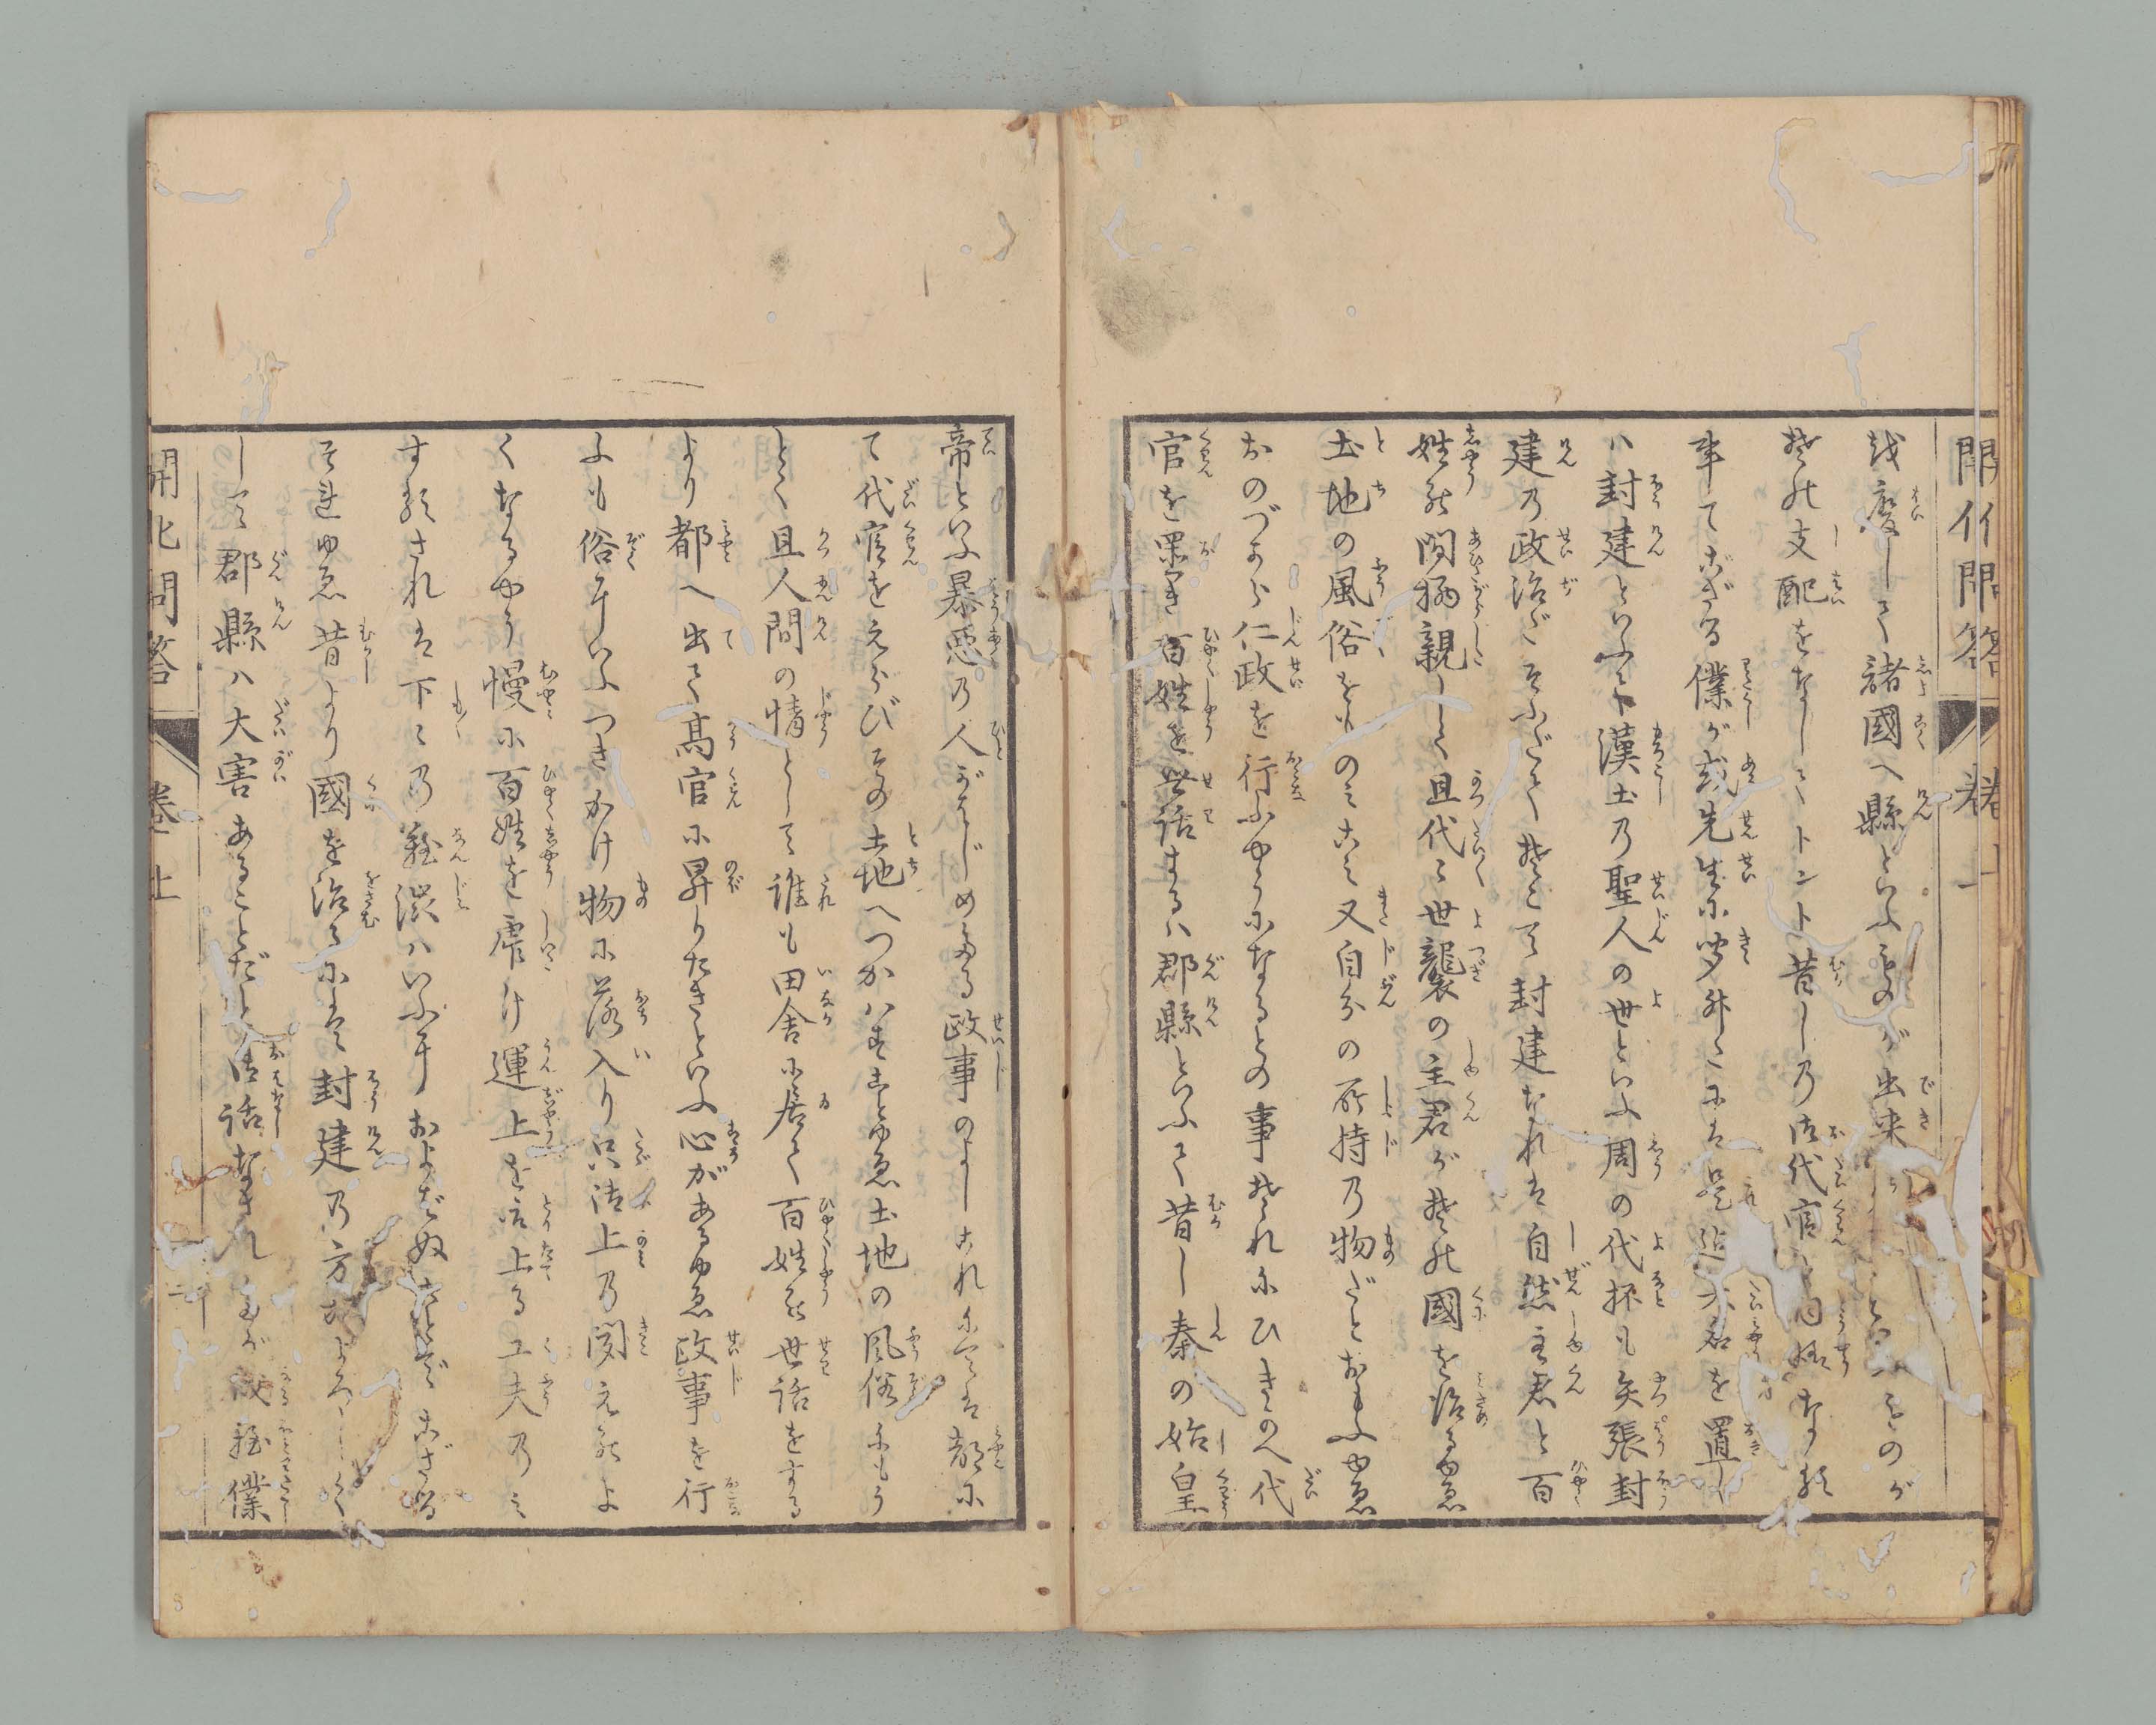 開化問答 巻上
を廢して諸國へ縣といふものが出来
其の支配をなしてトント昔しの御代官と同様なる
事でござる僕が或先生に聞升たには是迄大名を置
ハ封建といふて漢土の聖人の世といふ周の代抔も矢張封
建の政治だそふだて其こで封建なれは自然主君と百
姓の間柄親しく且代々世襲の主君が其の國を治るゆゑ
土地の風俗をものみこみ又自分の所持の物だとおもふゆゑ
おのづから仁政を行ふやうになるとの事其れにひきかへ代
官を置き百姓を世話するハ郡縣といふて昔し秦の始皇
帝といふ暴悪の人がはじめたる政事のよしこれにては都に
て代官をえらびその土地へつかハすことゆゑ土地の風俗にもう
とく且人間の情として誰も田舎に居て百姓の世話をする
より都へ出て高官に昇りたきといふ心があるゆゑ政事を行
ふも俗にいふつきかけ物に落入り只御上の聞えのよ
くなるやう慢に百姓を虐げ運上を取上る工夫のみ
する されは下々の難渋ハいふにおよばぬことでござる
それゆゑ昔より國を治るには封建の方がよろしく
して郡縣ハ大害あることだと御話なされました 僕
開化問答 巻上